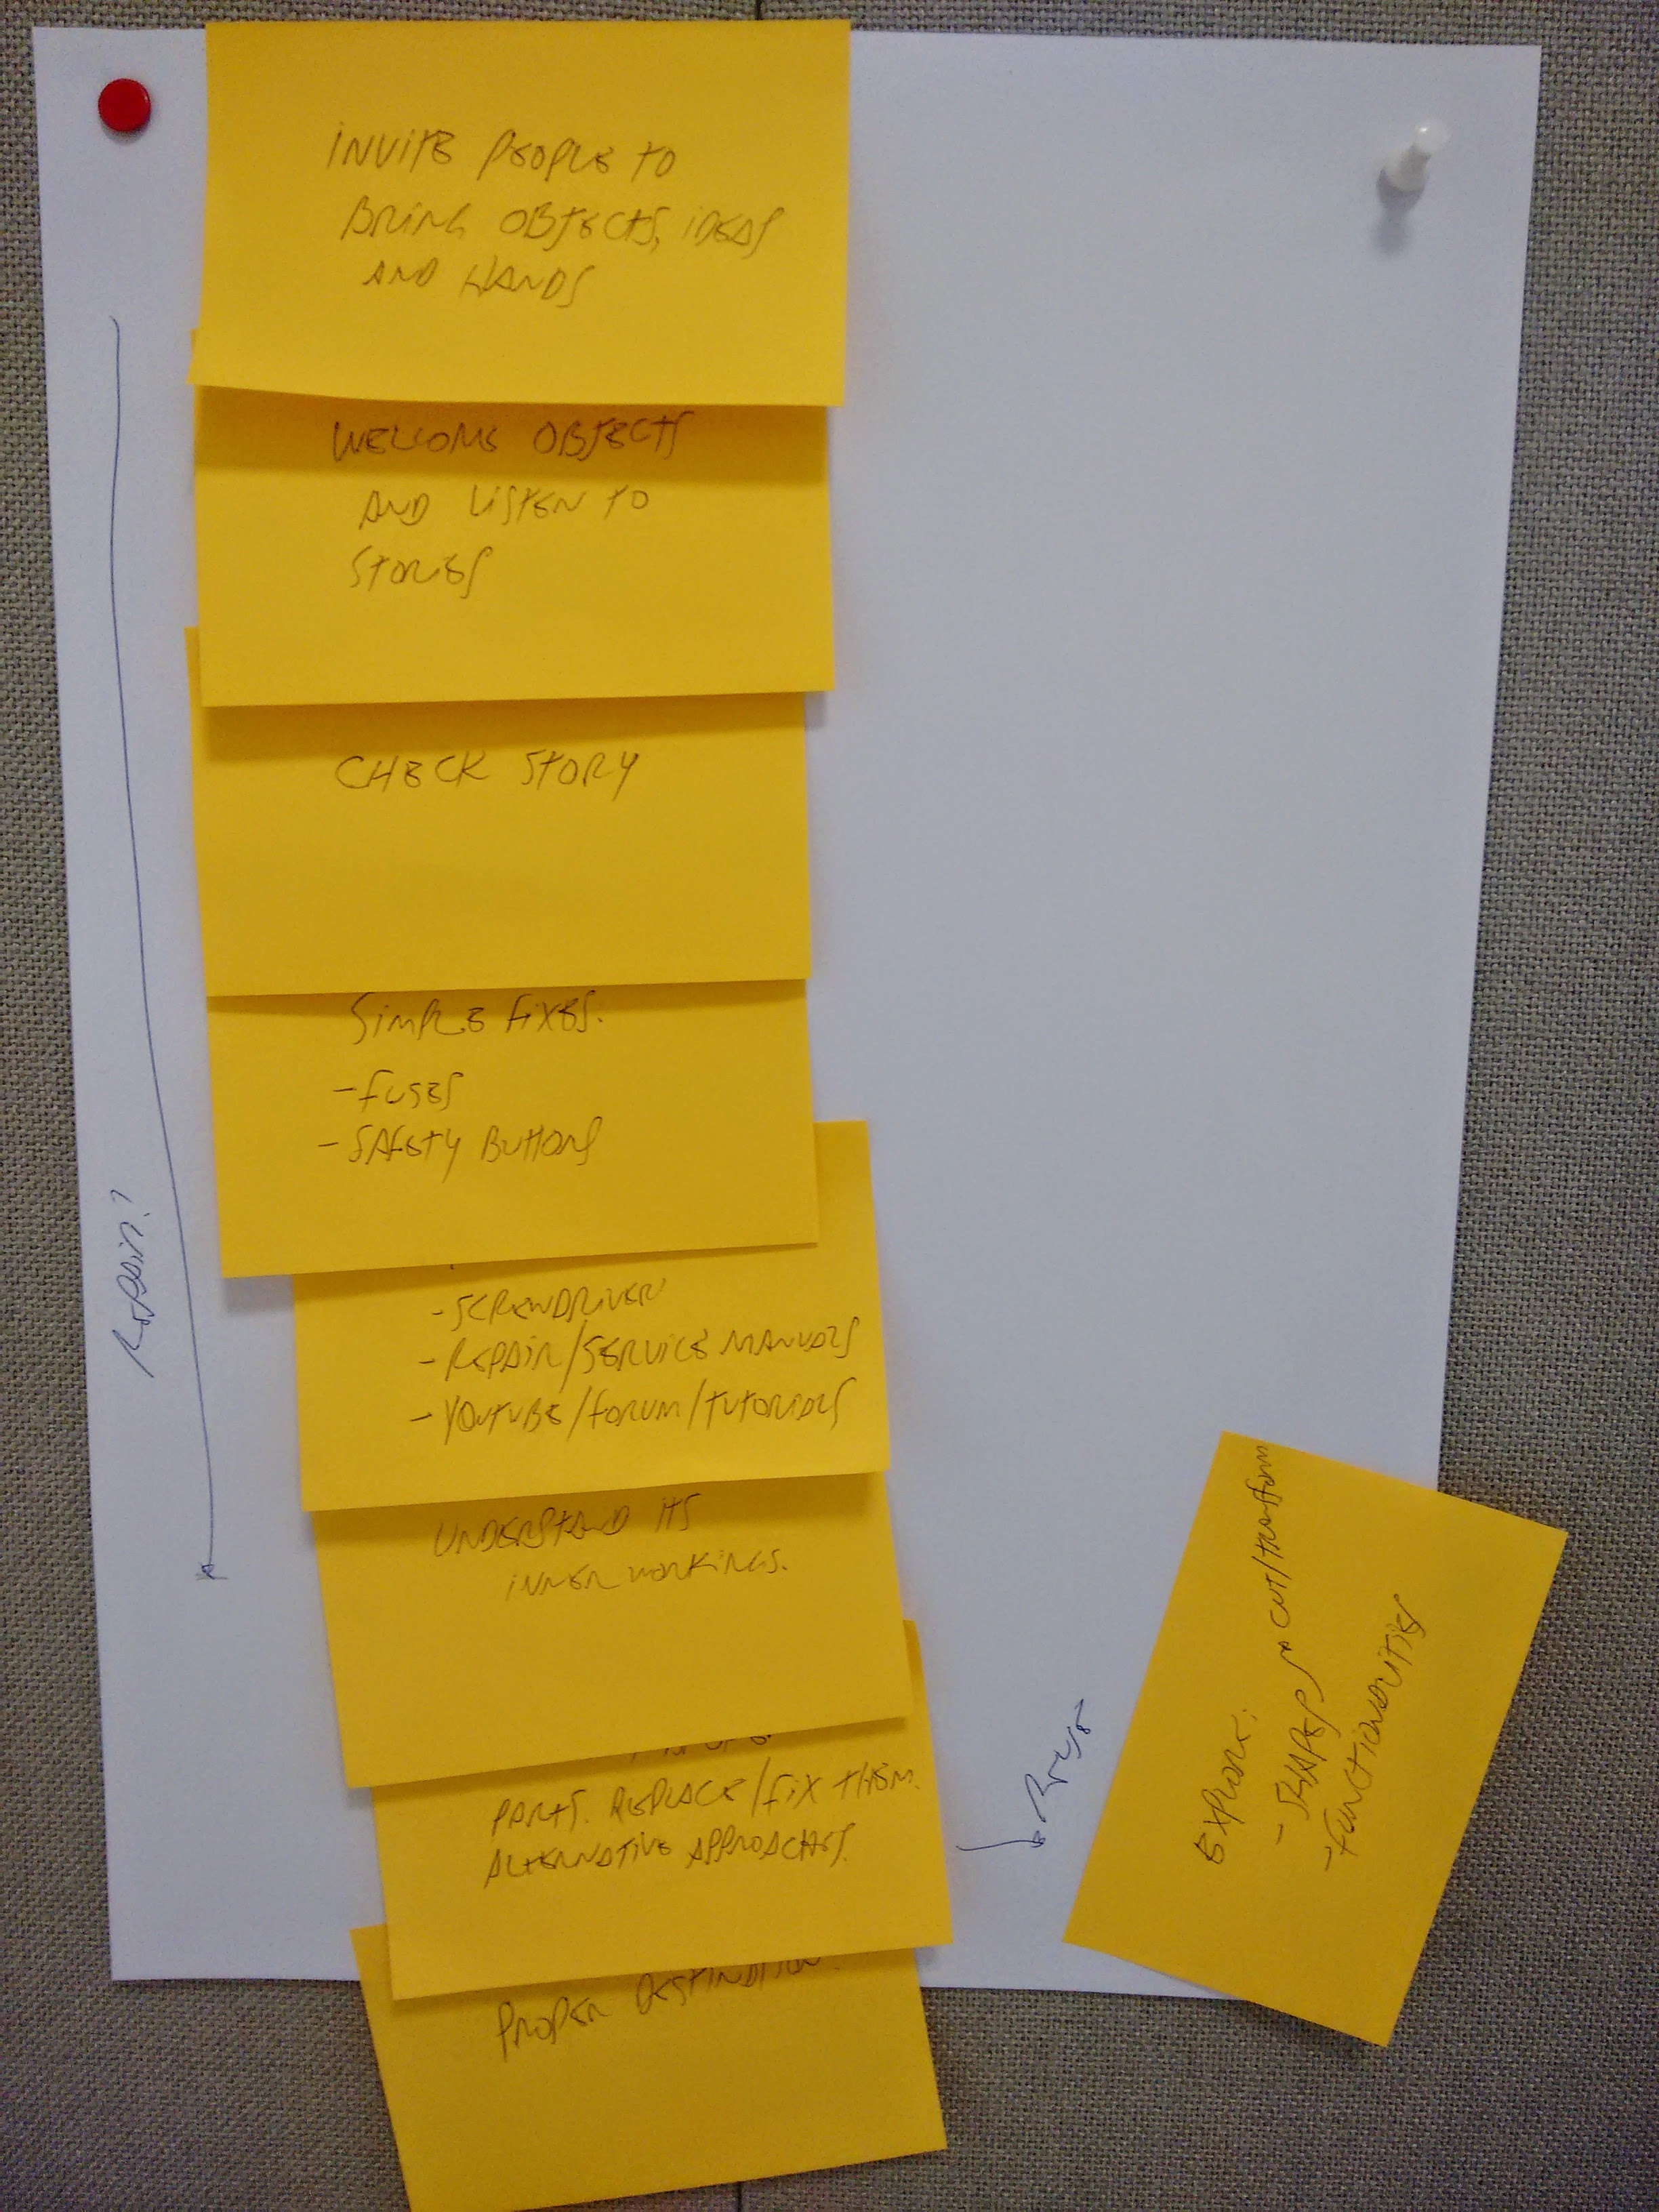 INVITE PEOPLE TO
BRING OBJECTS, IDEAS
AND HANDS
WELCOME OBJECTS
AND LISTEN TO
STORIES
CHECK STORY
SIMPLE FIXES:
- FUSES
- SAFETY BUTTONS
- SCREWDRIVER
- REPAIR/SERVICE MANUALS
- YOUTUBE/FORUM/TUTORIALS
UNDERSTAND ITS
INNER WORKINGS.
PARTS. REPLACE/FIX THEM.
ALTERNATIVE APPROACHES.
PROPER DESTINATION.
Repair?
Reuse
EXPLORE:
- SHAPES → CUT/TRANSFORM
- FUNCTIONALITIES